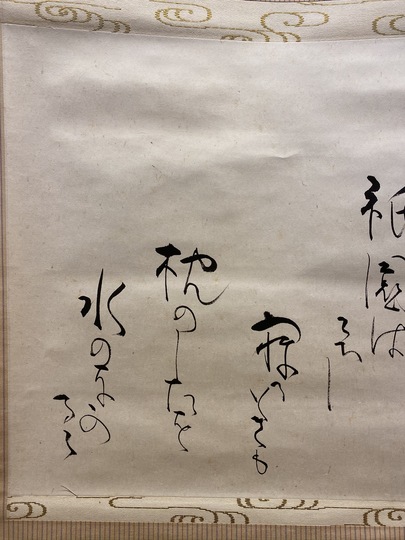 祇園は
こひし
寐るときも
枕のしたを
水のなか
るる